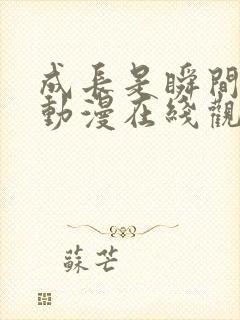 成長是瞬間
動漫在綫觀
蘇芒